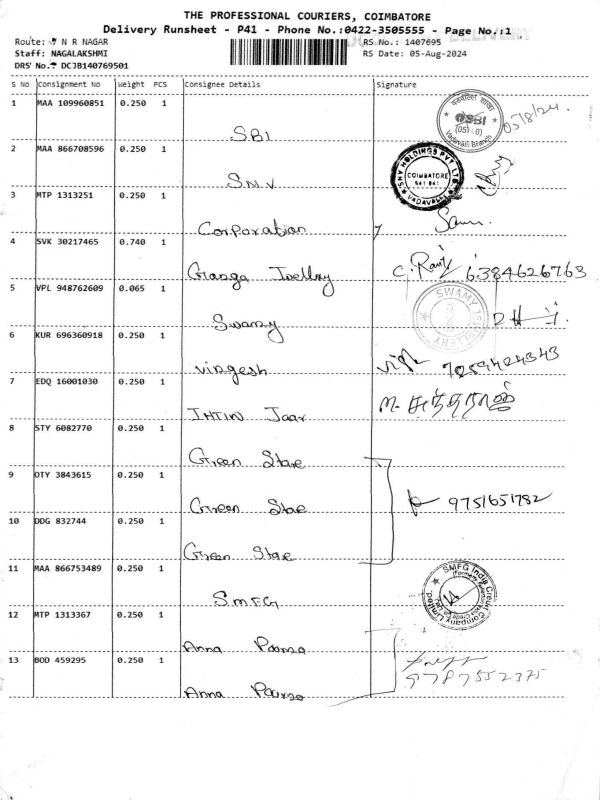 THE PROFESSIONAL COURIERS, COIMBATORE
Delivery Runsheet - P41 - Phone No.:0422-3505555 - Page No.:1
Route: N R NAGAR RS No.: 1407695
Staff: NAGALAKSHMI RS Date: 05-Aug-2024
DRS No. DCJB140769501
S No Consignment No Weight PCS Consignee Details Signature
1 MAA 109960851 0.250 1 SBI SBI Vadavalli Branch 05/8/24.
2 MAA 866708596 0.250 1 S.N.V HOLDINGS PVT LTD. COIMBATORE 641 041 VADAVALLI
3 MTP 1313251 0.250 1 Corporation
4 SVK 30217465 0.740 1 Ganga Jwellry C. Ravi 6384626763
5 VPL 948762609 0.065 1 Swamy SWAMY JEWELLERY
6 KUR 696360918 0.250 1 vignesh 7259424343
7 EDQ 16001030 0.250 1
8 STY 6082770 0.250 1 Green Stare
9 OTY 3843615 0.250 1 Green Stare 9751651782
10 DDG 832744 0.250 1 Green Stare
11 MAA 866753489 0.250 1 SMFG SMFG India Credit Company Limited
12 MTP 1313367 0.250 1 Anna
13 BOD 459295 0.250 1 Anna 9787552375